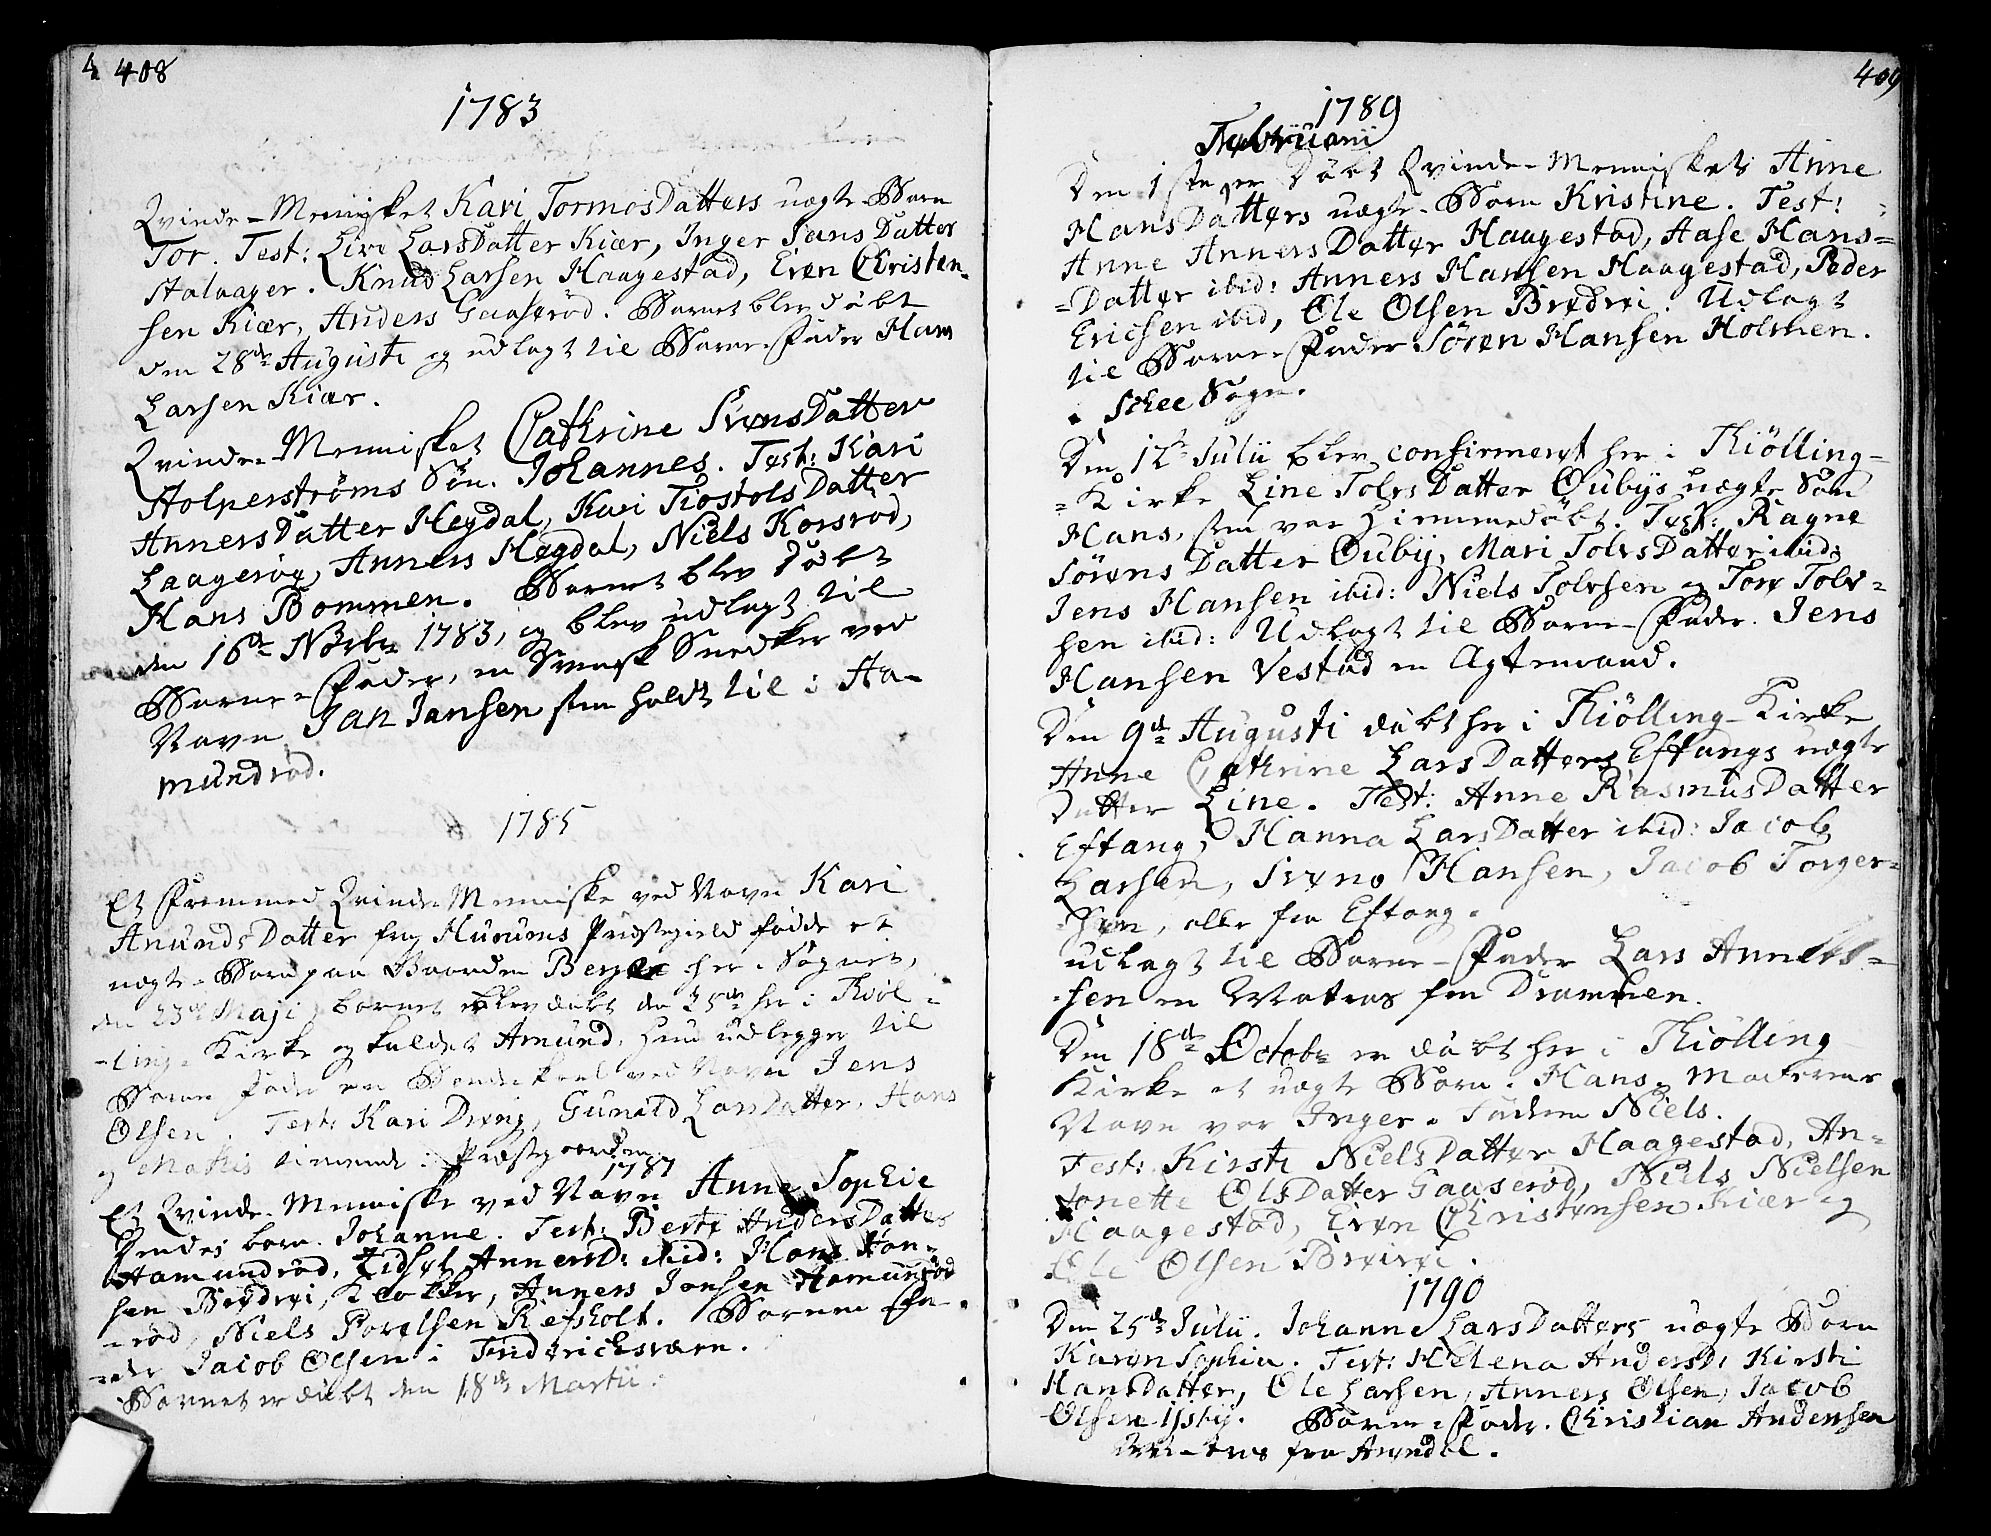 408
1783
Qvinde-Mennisket Kari TormosDatters uægte Barn
Tor. Test: Live LarsDatter Kiær, Inger JansDatter
Stalaager. Knud Larsen Haagestad, Even Christen-
sen Kiær, Anders Gaaserød. Barnet blev døbt
den 28de Augusti og udlagt til Barne-Fader Hans
Larsen Kiær.
Qvinde-Mennisket Cathrine SvensDatter
Holperstrøms Søn. Johannes. Test: Kari
AnnersDatter Hegdal, Kari TiostolsDatter
Laagerøe, Anners Hegdal, Niels Korsrød,
Hans Bommen. Barnet blev døbt
den 16de Novbr 1783, og blev udlagt til
Barne-Fader, en Svensk Snedker ved
Navn Jan Jansen som holdt til i Ha-
mundrød.
1785
Et Fremmed Qvinde Menniske ved Navn Kari
AnundsDatter fra Hurums Præstegield fødde et
uægte Barn paa Gaarden Berge her i Sognet,
den 23de Maji barnet blev døbt den 25de her i Kiøl-
-ling-Kirke og kaldet Amund. Hun udlegger til
Barne Fader en Bondekarl ved Navn Jens
Olsen. Test: Kari Dreng, Gunild LarsDatter, Hans
og Mathis tienende i Præstegaarden
1787
Et Qvinde-Menniske ved Navn Anne Sophie
hendes barn. Johanne. Test: Berte AndersDatter
Hamundrød, Zidsel Annersd: ibid: Hans Han-
sen Brydrøi, Klokker, Anners Jonsen Hamundrød
-rød, Niels Povelsen Refsholt. Barnets Fa-
-der Jacob Olsen i Fridrichsværn.
Barnet er døbt den 18de Martii.
409
1789
Februarii
Den 1ste er Døbt Qvinde-Menniskets Anne
HansDatters uægte-Barn Kristine. Test:
Anne AnnersDatter Haagestad, Aase Hans=
=Datter ibid: Anners Hansen Haagestad, Peder
Ericsen ibid, Ole Olsen Brydrøi. Udlagt
til Barne-Fader Søren Hansen Holmen.
i Schee Sogn.
Den 12te Julii blev confirmeret her i Kiølling-
=Kirke Line TolvsDatter Oubys uægte Søn
Hans, som var hiemmedøbt. Test: Ragne
SørensDatter Ouby, Mari TolvsDatter ibid:
Jens Hansen ibid: Niels Tolvsen og Tore Tolv=
sen ibid: Udlagt til Barne-Fader. Jens
Hansen Vestad en Ægtemand.
Den 9de Augusti døbt her i Kiølling-Kirke
Anne Cathrine LarsDatters Eftangs uægte
Datter Line. Test: Anne RasmusDatter
Eftang, Hanna LarsDatter ibid: Jacob
Larsen, Svend Hansen, Jacob Torger-
sen, alle fra Eftang.
udlagt til Barne-Fader Lars Anners-
-sen en Matros fra Drammen.
Den 18de Octobr er døbt her i Kiølling
Kirke et uægte Barn. Hans. Moderens
Navn var Inger. Faderen Niels.
Test: Kirsti NielsDatter Haagestad, An=
tonette OlsDatter Gaaserød, Niels Nielsen
Haagestad, Even Christensen Kiær og
Ole Olsen Brydrøi.
1790
Den 25de Julii. Johanne LarsDatters uægte Barn
Karen Sophia. Test: Helena Andersd: Kirsti
HansDatter, Ole Larsen, Anners Olsen, Jacob
Olsen Ijsby. Barne-Fader. Christian Andersen
Matros fra Arendal.